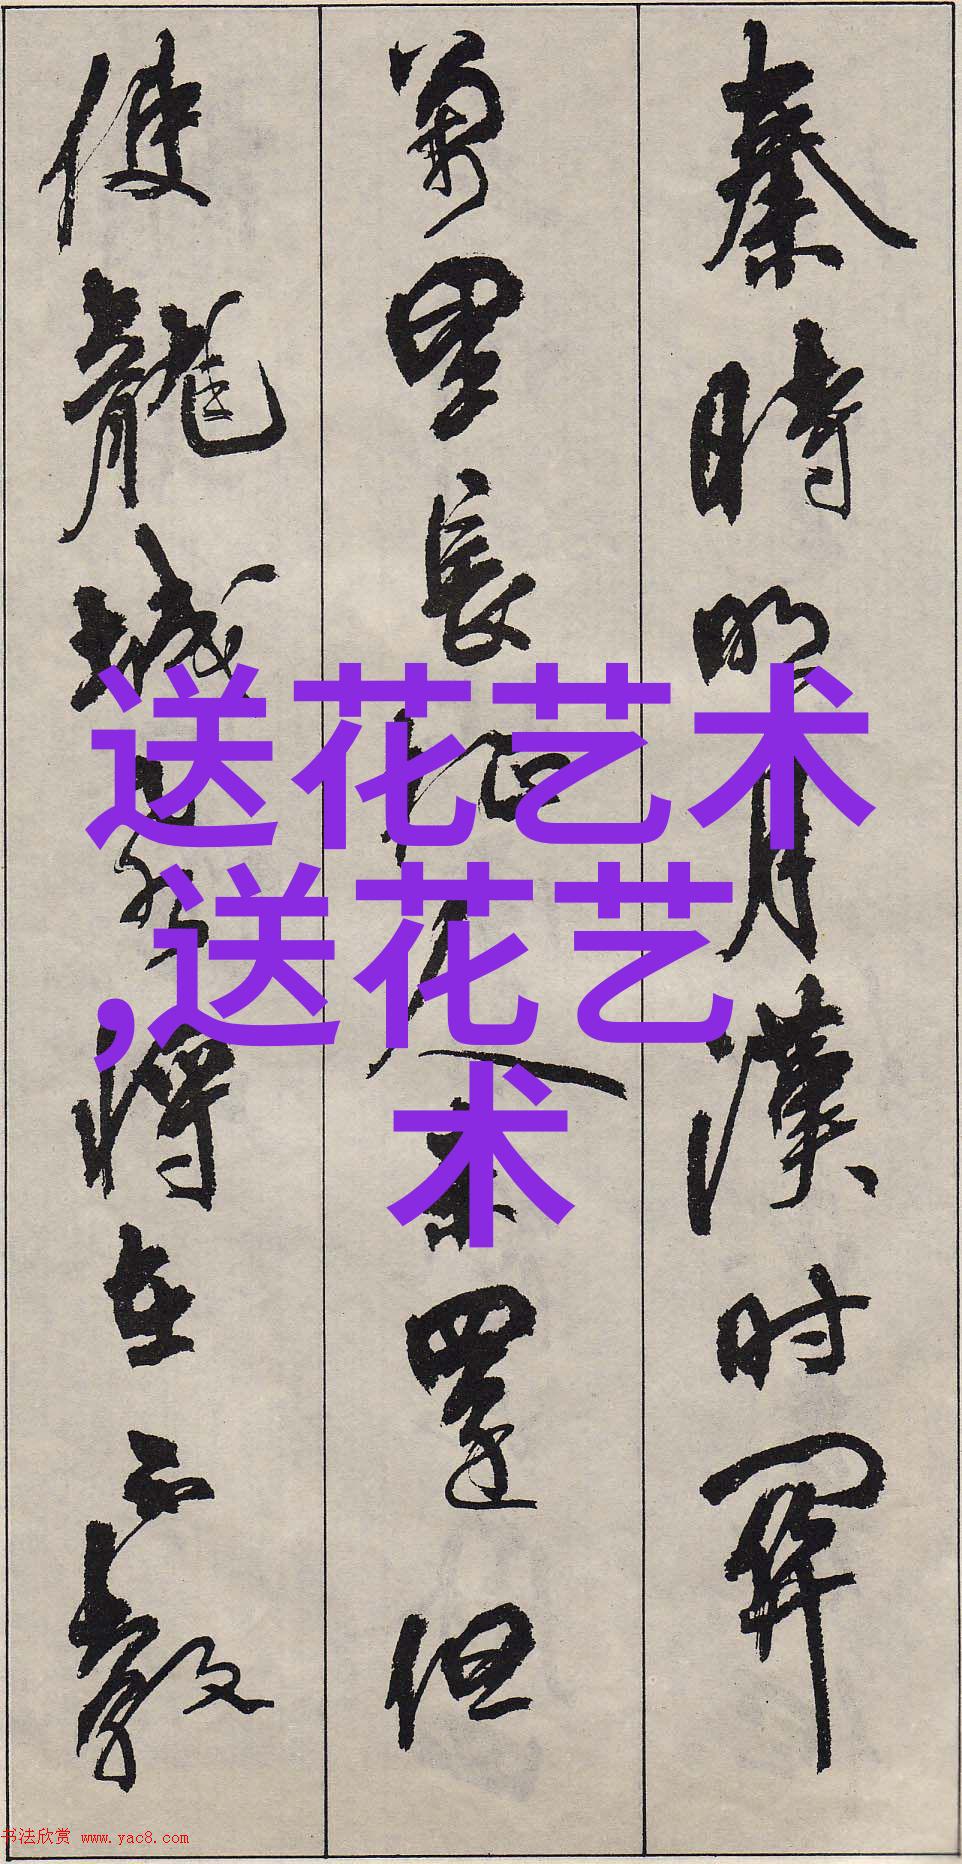 秦時明月漢时關
萬里長征人未還但
使龍城飛將在不教
送花艺术
,送花艺
术
书法欣赏 www.yac8.com